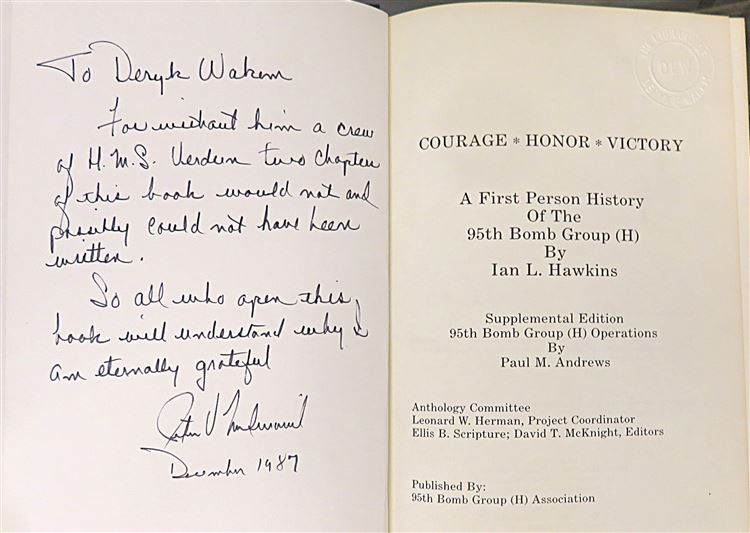 To Deryk Wakem
For without him a crew
of H.M.S. Verdun two chapters
of this book would not and
possibly could not have been
written.
So all who open this
book will understand why I
am eternally grateful
December 1987
COURAGE * HONOR * VICTORY
A First Person History
Of The
95th Bomb Group (H)
By
Ian L. Hawkins
Supplemental Edition
95th Bomb Group (H) Operations
By
Paul M. Andrews
Anthology Committee
Leonard W. Herman, Project Coordinator
Ellis B. Scripture; David T. McKnight, Editors
Published By:
95th Bomb Group (H) Association